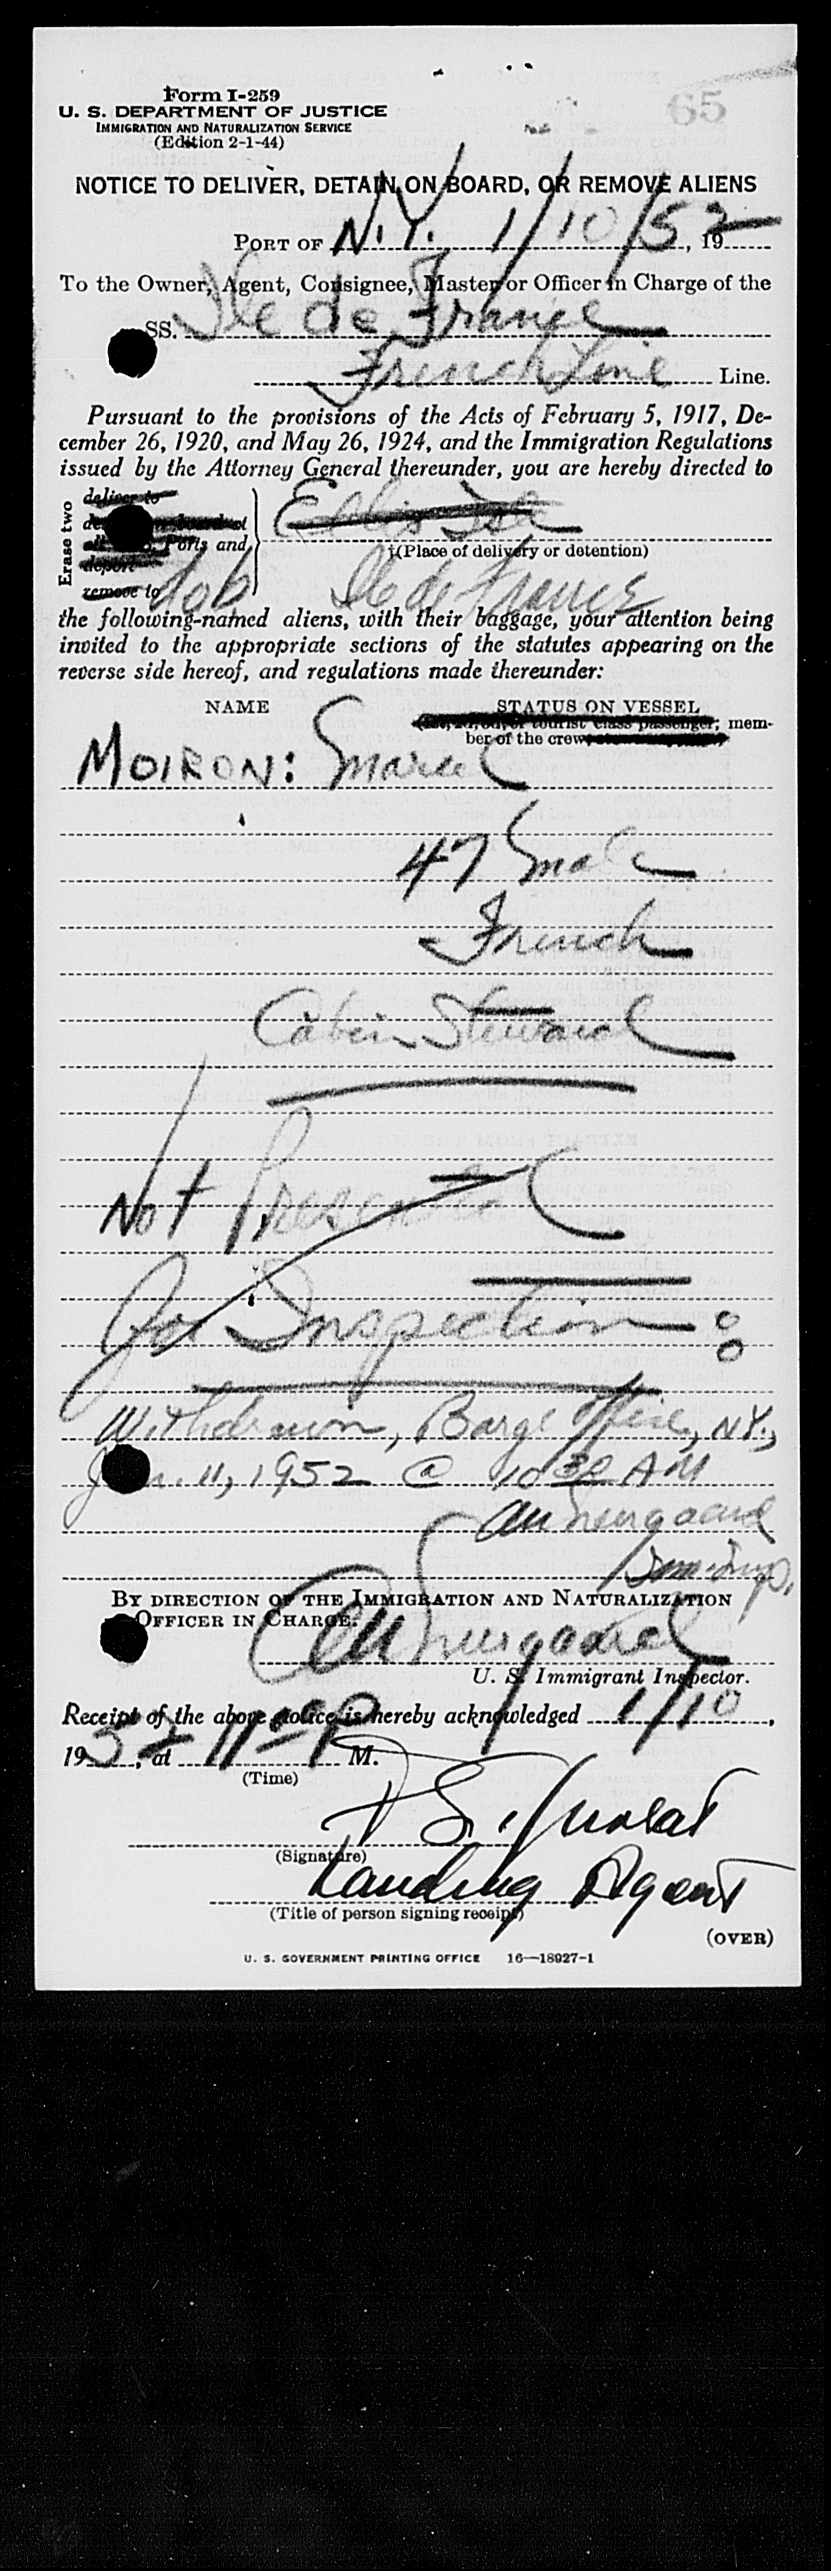 65
Form I-259
U. S. DEPARTMENT OF JUSTICE
IMMIGRATION AND NATURALIZATION SERVICE
(Edition 2-1-44)
NOTICE TO DELIVER, DETAIN ON BOARD, OR REMOVE ALIENS
PORT OF N.Y. 1/10/52, 19
To the Owner, Agent, Consignee, Master or Officer in Charge of the
SS. Ile de France
French Line Line.
Pursuant to the provisions of the Acts of February 5, 1917, De-
cember 26, 1920, and May 26, 1924, and the Immigration Regulations
issued by the Attorney General thereunder, you are hereby directed to
Erase two
deliver to
Ports and
deport
remove to
Ellis Isl
(Place of delivery or detention)
dob Ile de France
the following-named aliens, with their baggage, your attention being
invited to the appropriate sections of the statutes appearing on the
reverse side hereof, and regulations made thereunder:
NAME STATUS ON VESSEL
tourist class passenger; mem-
ber of the crew
MOIRON: Marcel
47 Male
French
Cabin Steward
Not Presented
for Inspection:
Withdrawn, Barge Office, NY.,
Jan. 11, 1952 @ 10 30 AM
BY DIRECTION OF THE IMMIGRATION AND NATURALIZATION
OFFICER IN CHARGE:
U. S. Immigrant Inspector.
Receipt of the above notice is hereby acknowledged 1/10,
1952, at P M.
(Time)
(Signature)
Landing Agent
(Title of person signing receipt)
(OVER)
U. S. GOVERNMENT PRINTING OFFICE 16—18927-1